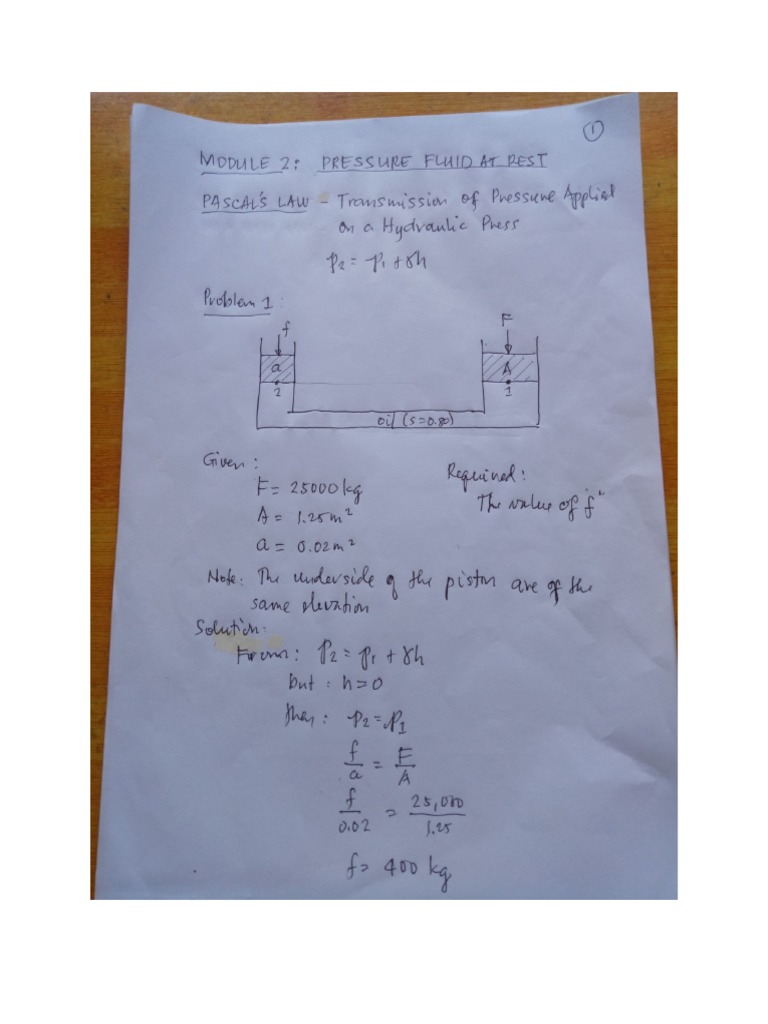 ①
MODULE 2: PRESSURE FLUID AT REST
PASCAL'S LAW - Transmission of Pressure Applied
on a Hydraulic Press
p₂ = p₁ + γh
Problem 1:
f
F
a
A
2
1
oil (s=0.80)
Given:
F = 25000 kg
A = 1.25 m²
a = 0.02 m²
Required:
The value of "f"
Note: The underside of the piston are of the
same elevation
Solution:
From: p₂ = p₁ + γh
but: h=0
then: p₂ = p₁
f/a = F/A
f/0.02 = 25,000/1.25
f= 400 kg